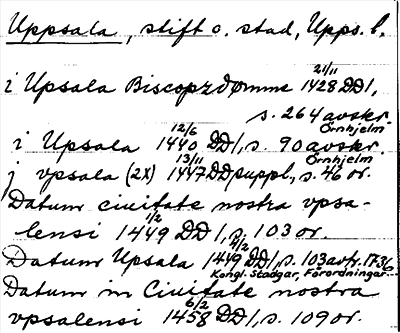 Uppsala, stift o. stad, Upps. l.
i Upsala Biscopzdømme 21/11 1428 DD1,
s. 264 avskr. Örnhjelm
i Upsala 12/6 1440 DD1, s. 90 avskr. Örnhjelm
j vpsala (2x) 13/11 1447 DDsuppl., s. 46 or.
Datum ciuitate nostra vpsa-
lensi 1/2 1449 DD1, s. 103 or.
Datum Upsala 4/2 1449 DD1, s. 103 avtr. 1736
Kongl. Stadgar, Förordningar
Datum in Ciuitate nostra
vpsalensi 6/2 1458 DD1, s. 109 or.